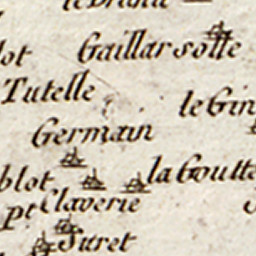 Gaillarsolle
Tutelle
le Gin
Germain
blot
la Goutte
pt Claverie
Suret